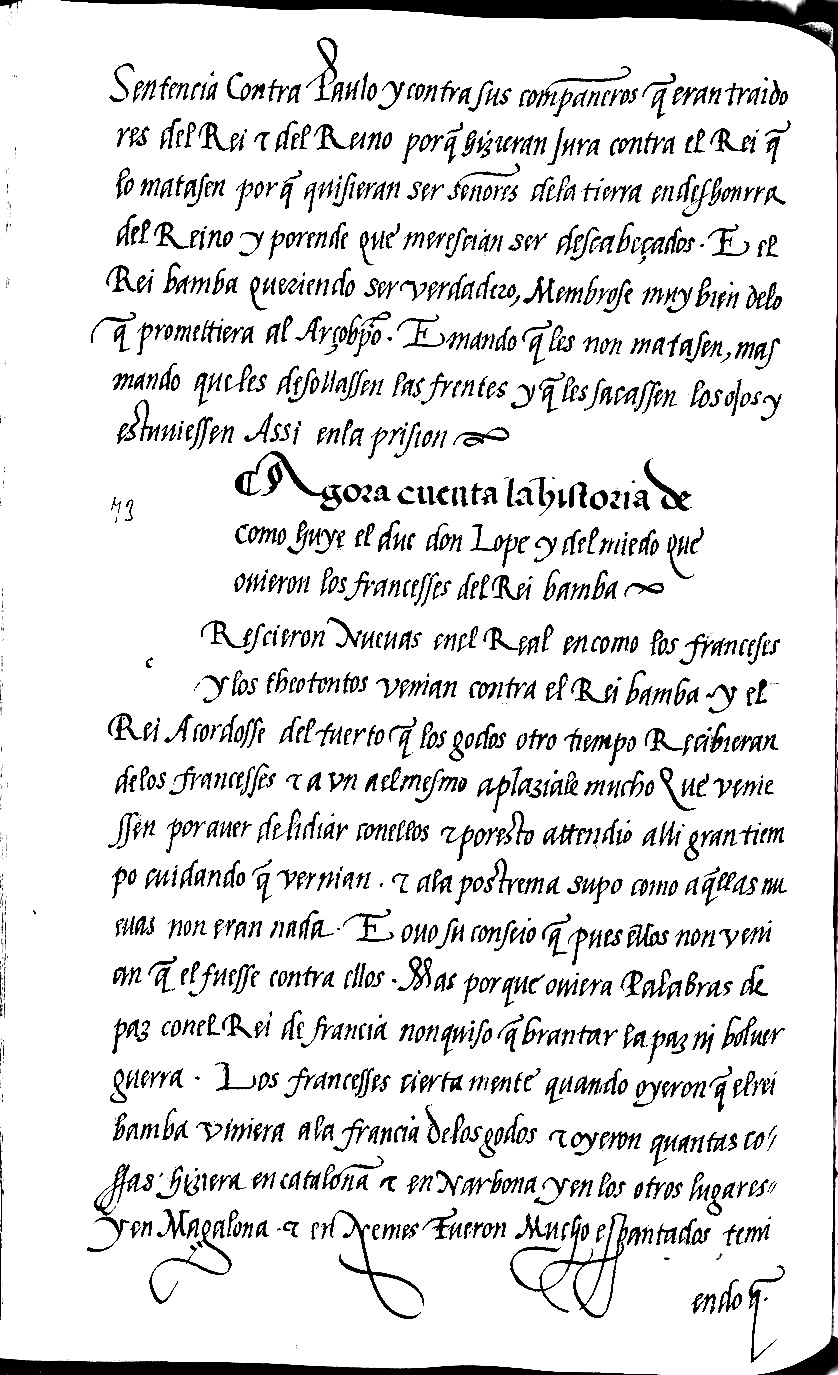 Sentencia Contra Paulo y contra sus compan̄eros q̄ eran traido
res del Rei ⁊ del Reino porq̄ hizieran Jura contra el Rei q̄
lo matasen porq̄ quisieran ser sen̄ores dela tierra en deshonrra
del Reino y porende que mereseian ser descabeçados. E el
Rei bamba queriendo ser verdadero, Membrose muy bien delo
q̄ promettiera al Arçobp̄o. E mando q̄ les non matasen, mas
mando que les desollassen las frentes y q̄ les sacassen los ojos y
estuuiessen Assi enla prision
¶ Agora cuenta la historia de
73
como huye el duc don Lope y del miedo que
ouieron los francesses del Rei bamba
Rescieron Nueuas enel Real en como los franceses
c
y los theotontos venian contra el Rei bamba y el
Rei Acordosse del tuerto q̄ los godos otro tiempo Recibieran
delos francesses ⁊ a vn ael mesmo aplaziale mucho Que venie
ssen por auer de lidiar conellos ⁊ por esto attendio alli gran tiem
po cuidando q̄ vernian. ⁊ ala postrema supo como aq̄llas nu
euas non eran nada. E ouo su conseio q̄ pues ellos non veni
an q̄ el fuesse contra ellos. Mas porque ouiera Palabras de
paz conel Rei de francia non quiso q̄brantar la paz ni boluer
guerra. Los francesses cierta mente quando oyeron q̄ el rei
bamba viniera ala francia delos godos ⁊ oyeron quantas co/
ssas hiziera en catalon̄a ⁊ en Narbona y en los otros lugares
y en Magalona ⁊ en Nemes Fueron Mucho espantados temi
endo q̄.